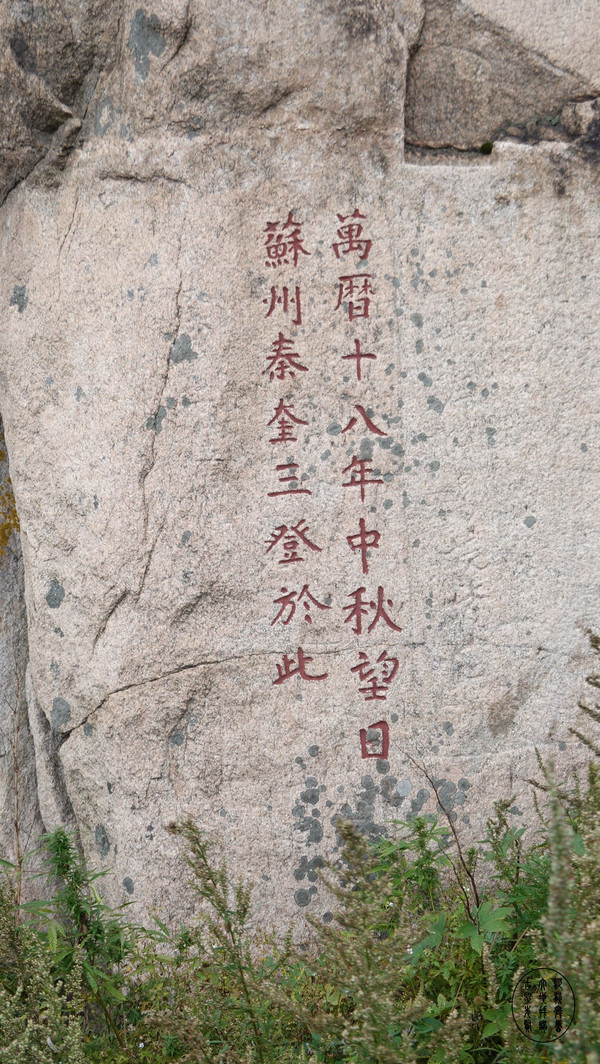 萬曆十八年中秋望日
蘇州秦奎三登於此